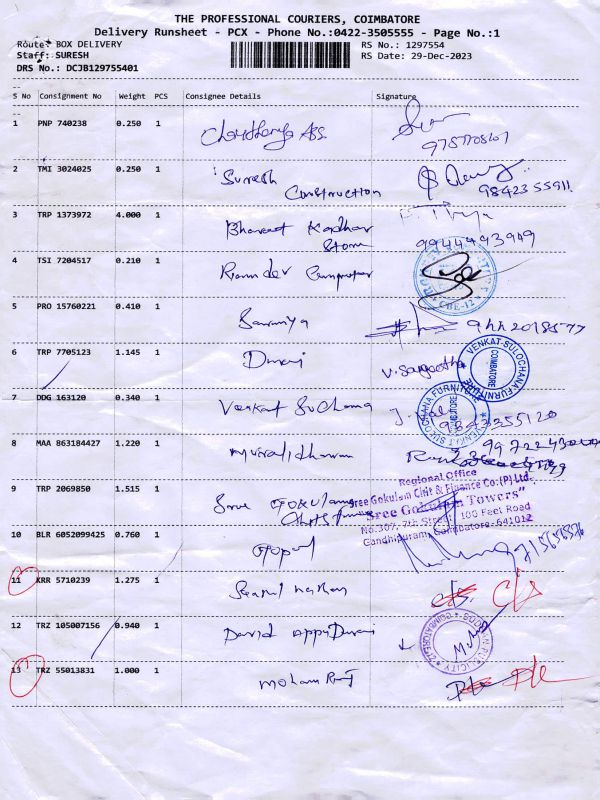 THE PROFESSIONAL COURIERS, COIMBATORE
Delivery Runsheet - PCX - Phone No.:0422-3505555 - Page No.:1
Route: BOX DELIVERY RS No.: 1297554
Staff: SURESH RS Date: 29-Dec-2023
DRS No.: DCJB129755401
S No Consignment No Weight PCS Consignee Details Signature
1 PNP 740238 0.250 1
2 TMI 3024025 0.250 1 Suresh
Construction 98423 55911
3 TRP 1373972 4.000 1 Bharat
Store 9944493949
4 TSI 7204517 0.210 1
5 PRO 15760221 0.410 1 Sowmiya
6 TRP 7705123 1.145 1 Durai V. Sangeetha
VENKAT SULOCHANA FURNITURE
COIMBATORE
7 DDG 163120 0.340 1 Venkat 9843355120
VENKAT SULOCHANA FURNITURE
COIMBATORE
8 MAA 863184427 1.220 1 Muralidharan
9 TRP 2069850 1.515 1 Sree Gokulam
Chits
Regional Office
Sree Gokulam Chit & Finance Co.(P) Ltd.
"Sree Gokulam Towers"
No.307, 7th Street, 100 Feet Road
Gandhipuram, Coimbatore-641012
10 BLR 6052099425 0.760 1 Gopal
11 KRR 5710239 1.275 1 c/s
12 TRZ 105007156 0.940 1 David Appu Durai
13 TRZ 55013831 1.000 1 Mohan Raj